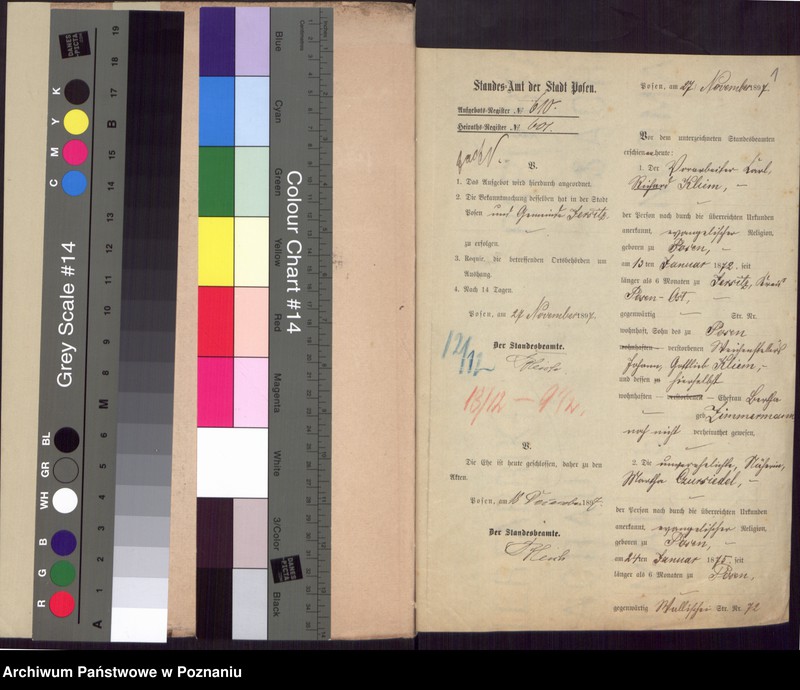 Grey Scale #14
R G B WH GR BL C M Y K
A 1 2 3 4 5 6 M 8 9 10 11 12 13 14 15 B 17 18 19
DANES PICTA
Colour Chart #14
Blue
Cyan
Green
Yellow
Red
Magenta
White
3/Color
Black
Standes-Amt der Stadt Posen.
Aufgebots-Register № 610.
Heiraths-Register № 601.
V.
1. Das Aufgebot wird hierdurch angeordnet.
2. Die Bekanntmachung desselben hat in der Stadt
Posen und Gemeinde Jersitz
zu erfolgen.
3. Requir. die betreffenden Ortsbehörden um
Aushang.
4. Nach 14 Tagen.
Posen, am 27 November 1897.
Der Standesbeamte.
12/12
13/12 —
V.
Die Ehe ist heute geschlossen, daher zu den
Akten.
Posen, am 13 Dezember 1897.
Der Standesbeamte.
1
Posen, am 27 November 1897.
Vor dem unterzeichneten Standesbeamten
erschienen heute:
1. Der Vorarbeiter Karl
Richard Kliem, —
der Person nach durch die überreichten Urkunden
anerkannt, evangelischer Religion,
geboren zu Posen, —
am 13ten Januar 1872, seit
länger als 6 Monaten zu Jersitz, Kreis
Posen-Ost, —
gegenwärtig — Str. Nr.
wohnhaft, Sohn des zu Posen
wohnhaften — verstorbenen Weichenstellers
Johann Gottlieb Kliem, —
und dessen zu hierselbst
wohnhaften — verstorbenen — Ehefrau Bertha
geb. Zimmermann
noch nicht verheirathet gewesen.
2. Die unverehelichte, Näherin,
Martha
der Person nach durch die überreichten Urkunden
anerkannt, evangelischer Religion,
geboren zu Posen, —
am 24ten Januar 1875, seit
länger als 6 Monaten zu Posen,
gegenwärtig Wallischei Str. Nr. 72
Archiwum Państwowe w Poznaniu